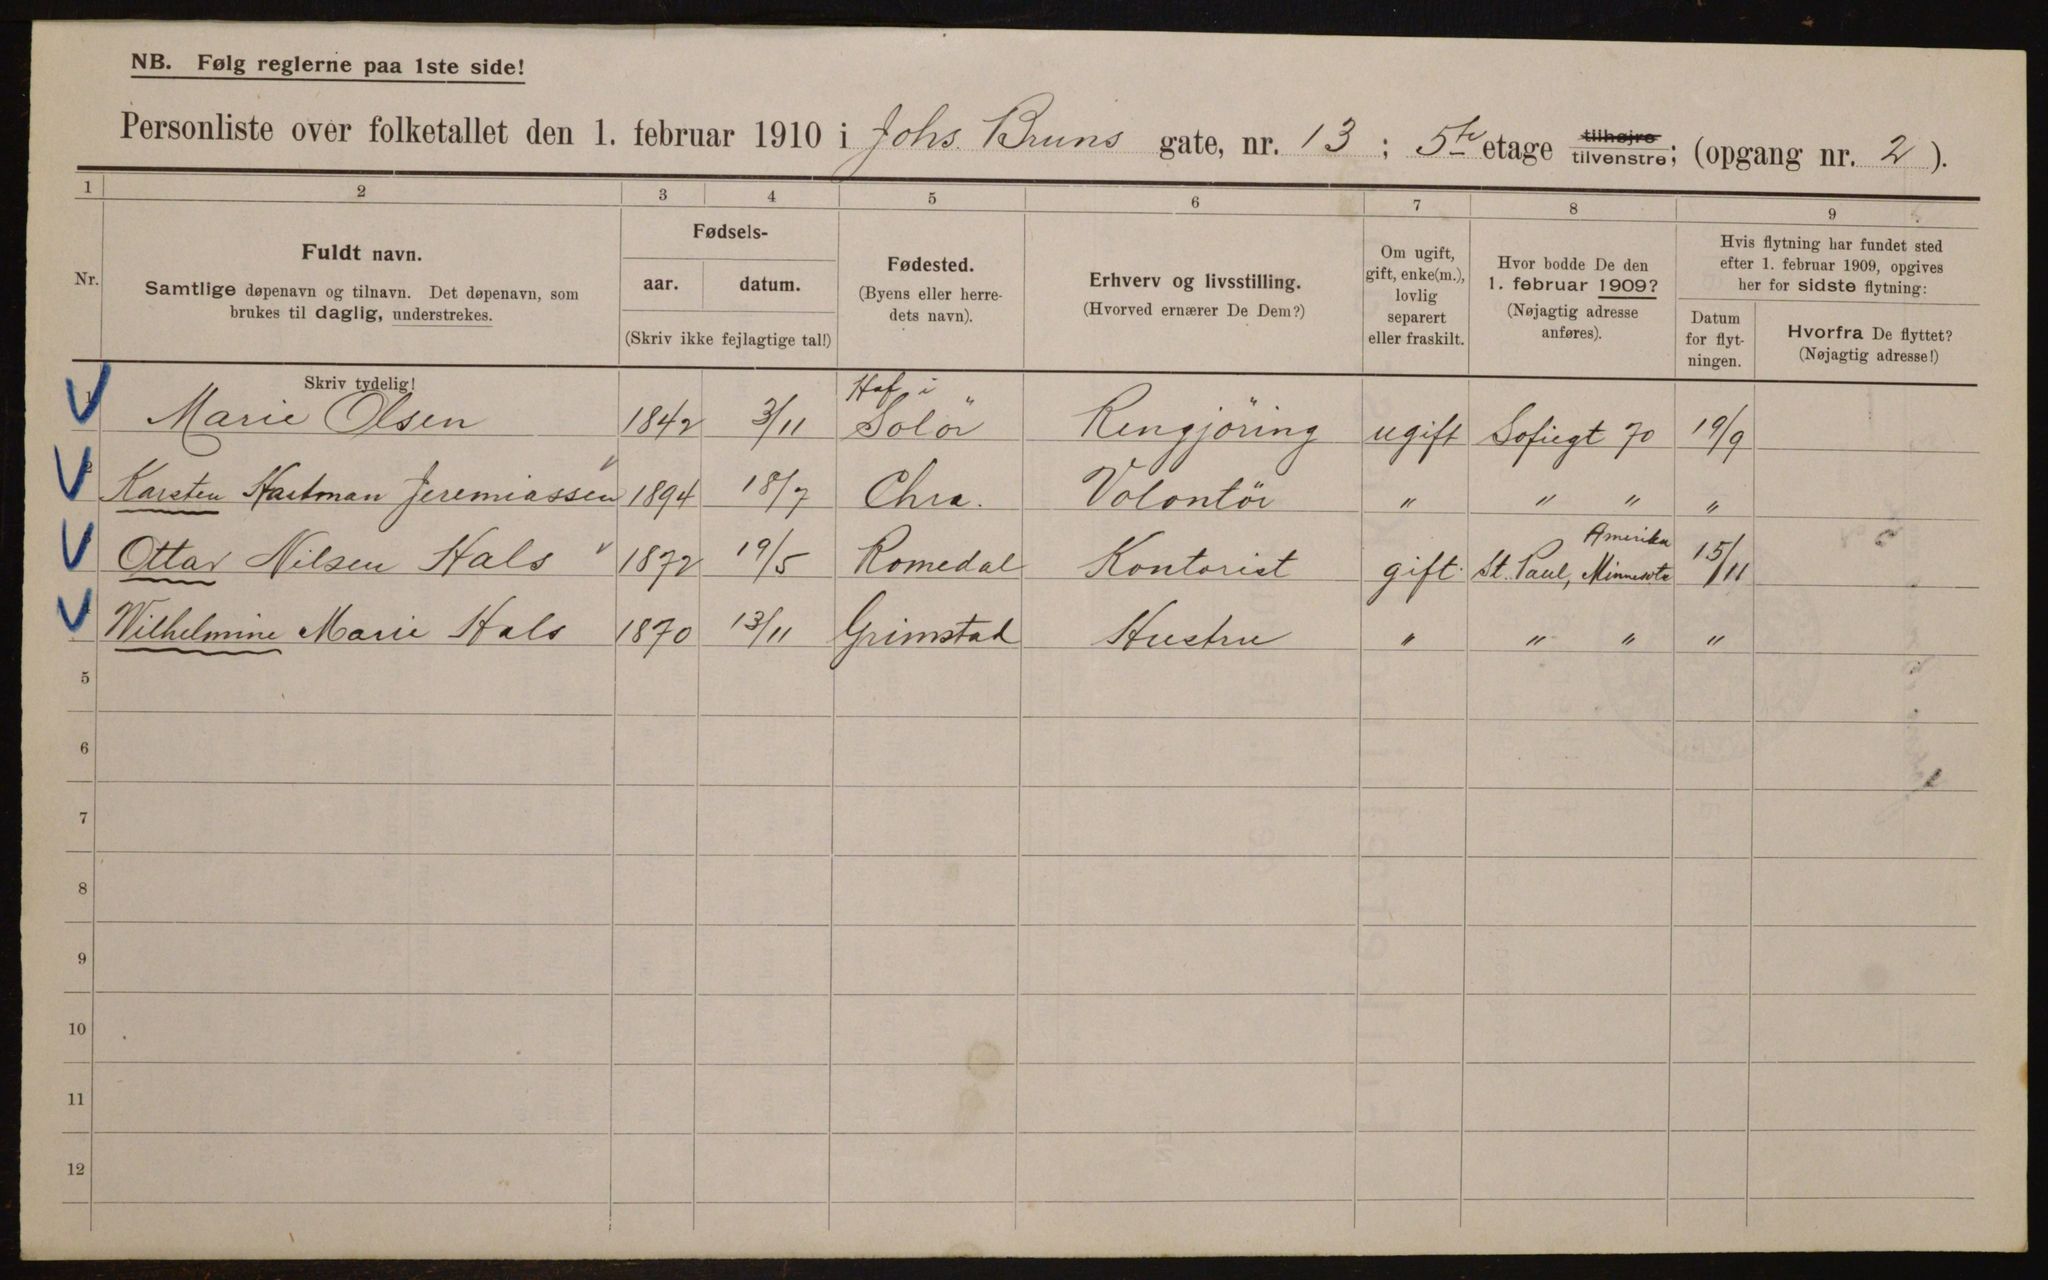 NB. Følg reglerne paa 1ste side!
Personliste over folketallet den 1. februar 1910 i Johs. Bruns gate, nr. 13 ; 5te etage tilhøjre tilvenstre; (opgang nr. 2 ).
1 2 3 4 5 6 7 8 9
Nr.
Fuldt navn.
Samtlige døpenavn og tilnavn. Det døpenavn, som
brukes til daglig, understrekes.
Fødsels-
aar. datum.
(Skriv ikke fejlagtige tal!)
Fødested.
(Byens eller herre-
dets navn).
Erhverv og livsstilling.
(Hvorved ernærer De Dem?)
Om ugift,
gift, enke(m.),
lovlig
separert
eller fraskilt.
Hvor bodde De den
1. februar 1909?
(Nøjagtig adresse
anføres).
Hvis flytning har fundet sted
efter 1. februar 1909, opgives
her for sidste flytning:
Datum
for flyt-
ningen.
Hvorfra De flyttet?
(Nøjagtig adresse!)
Skriv tydelig!
Marie Olsen 1842 3/11 Hof i Solör Rengjöring ugift Sofiegt 70 19/9
Karsten Hartman Jeremiassen 1894 18/7 Chra. Volontör " " " "
Ottar Nilsen Hals 1872 19/5 Romedal Kontorist gift. St. Paul, Minnesota Amerika 15/11
Wilhelmine Marie Hals 1870 13/11 Grimstad Hustru " " " "
5
6
7
8
9
10
11
12